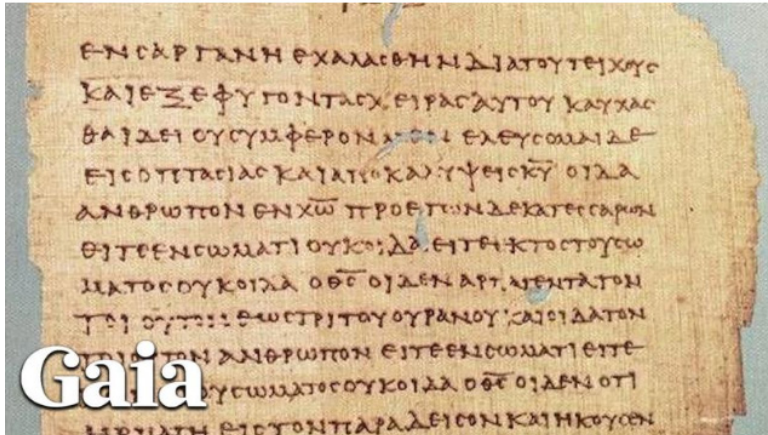 ΕΝϹΑΡΓΑΝΗΕΧΑΛΑϹΘΗΝΔΙΑΤΟΥΤΕΙΧΟΥϹ
ΚΑΙΕΞΕΦΥΓΟΝΤΑϹΧΕΙΡΑϹΑΥΤΟΥΚΑΥΧΑϹ
ΘΑΙΔΕΙΟΥϹΥΜΦΕΡΟΝ ΕΛΕΥϹΟΜΑΙΔΕ
ΕΙϹΟΠΤΑϹΙΑϹΚΑΙΑΠΟΚΑΛΥΨΕΙϹΚ̅Υ̅ΟΙΔΑ
ΑΝΘΡΩΠΟΝΕΝΧ̅Ω̅ΠΡΟΕΤΩΝΔΕΚΑΤΕϹϹΑΡΩΝ
ΕΙΤΕΕΝϹΩΜΑΤΙΟΥΚΟΙΔΑΕΙΤΕΕΚΤΟϹΤΟΥϹΩ
ΜΑΤΟϹΟΥΚΟΙΔΑΟΘ̅Ϲ̅ΟΙΔΕΝΑΡΠΑΓΕΝΤΑΤΟΝ
ΤΟΙΟΥΤΟΝΕΩϹΤΡΙΤΟΥΟΥΡΑΝΟΥΚΑΙΟΙΔΑΤΟΝ
ΤΟΙΟΥΤΟΝΑΝΘΡΩΠΟΝΕΙΤΕΕΝϹΩΜΑΤΙΕΙΤΕ
ΟΥϹΩΜΑΤΟϹΟΥΚΟΙΔΑΟΘ̅Ϲ̅ΟΙΔΕΝΟΤΙ
ΕΙϹΤΟΝΠΑΡΑΔΕΙϹΟΝΚΑΙΗΚΟΥϹΕΝ
Gaia